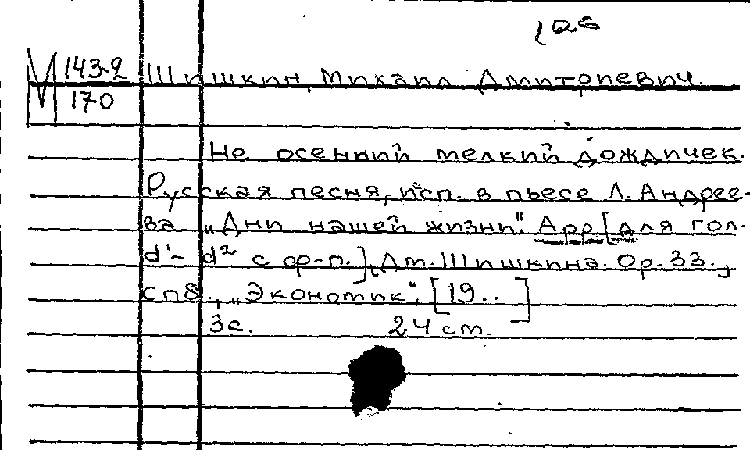 М 143-2
170
Шишкин, Михаил Дмитриевич.
Не осенний мелкий дождичек.
Русская песня, исп. в пьесе Л. Андрее-
ва "Дни нашей жизни". Арр. [для гол.
d¹– d² с ф-п.], Дм. Шишкина. Ор. 33.,
спб., "Экономик", [19..]
3с. 24 ст.